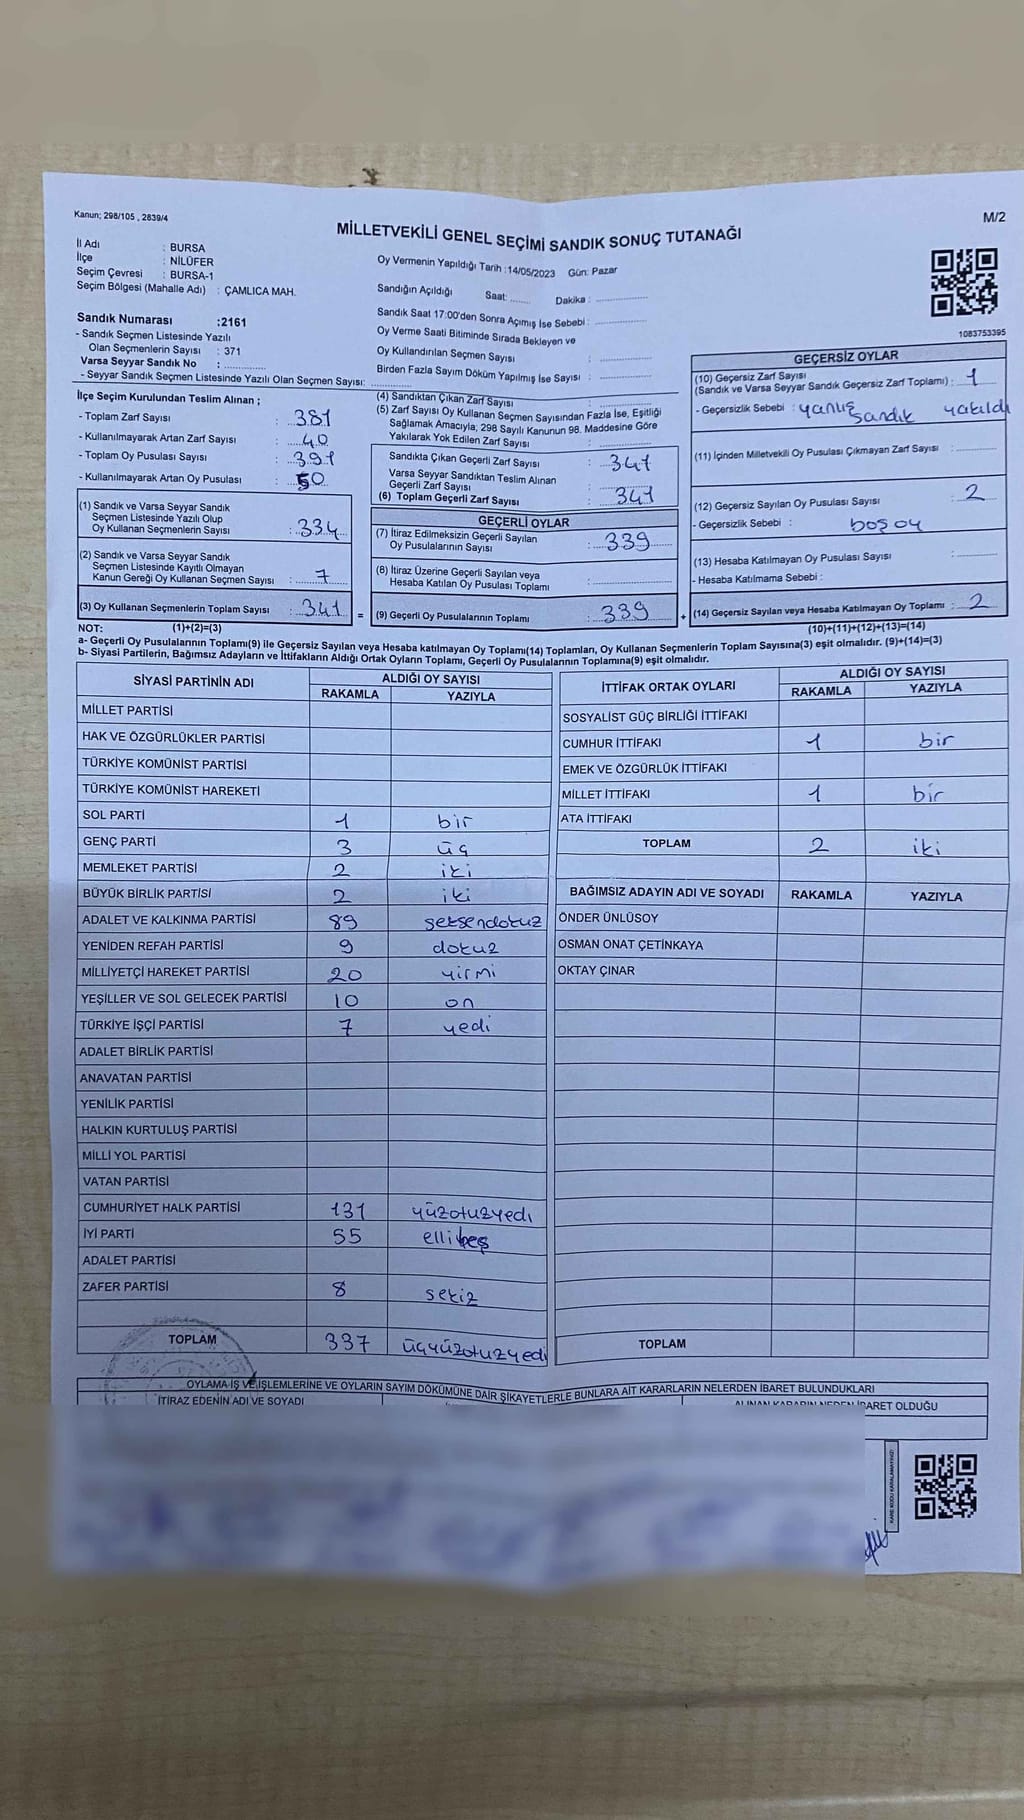 Kanun; 298/105 , 2839/4
M/2
MİLLETVEKİLİ GENEL SEÇİMİ SANDIK SONUÇ TUTANAĞI
İl Adı : BURSA
İlçe : NİLÜFER
Seçim Çevresi : BURSA-1
Seçim Bölgesi (Mahalle Adı) : ÇAMLICA MAH.
Oy Vermenin Yapıldığı Tarih :14/05/2023 Gün: Pazar
Sandığın Açıldığı Saat: ........ Dakika : ................
Sandık Saat 17:00'den Sonra Açımış İse Sebebi : ................
Oy Verme Saati Bitiminde Sırada Bekleyen ve
Oy Kullandırılan Seçmen Sayısı : ................
Birden Fazla Sayım Döküm Yapılmış İse Sayısı : ................
1083753395
Sandık Numarası :2161
- Sandık Seçmen Listesinde Yazılı
Olan Seçmenlerin Sayısı : 371
Varsa Seyyar Sandık No : ................
- Seyyar Sandık Seçmen Listesinde Yazılı Olan Seçmen Sayısı: ................
İlçe Seçim Kurulundan Teslim Alınan ;
- Toplam Zarf Sayısı : 381
- Kullanılmayarak Artan Zarf Sayısı : 40
- Toplam Oy Pusulası Sayısı : 391
- Kullanılmayarak Artan Oy Pusulası : 50
(1) Sandık ve Varsa Seyyar Sandık
Seçmen Listesinde Yazılı Olup
Oy Kullanan Seçmenlerin Sayısı : 334
(2) Sandık ve Varsa Seyyar Sandık
Seçmen Listesinde Kayıtlı Olmayan
Kanun Gereği Oy Kullanan Seçmen Sayısı : 7
(3) Oy Kullanan Seçmenlerin Toplam Sayısı : 341 =
(4) Sandıktan Çıkan Zarf Sayısı : ................
(5) Zarf Sayısı Oy Kullanan Seçmen Sayısından Fazla İse, Eşitliği
Sağlamak Amacıyla; 298 Sayılı Kanunun 98. Maddesine Göre
Yakılarak Yok Edilen Zarf Sayısı : ................
Sandıkta Çıkan Geçerli Zarf Sayısı : 341
Varsa Seyyar Sandıktan Teslim Alınan
Geçerli Zarf Sayısı : ................
(6) Toplam Geçerli Zarf Sayısı : 341
GEÇERLİ OYLAR
(7) İtiraz Edilmeksizin Geçerli Sayılan
Oy Pusulalarının Sayısı : 339
(8) İtiraz Üzerine Geçerli Sayılan veya
Hesaba Katılan Oy Pusulası Toplamı : ................
(9) Geçerli Oy Pusulalarının Toplamı : 339 +
GEÇERSİZ OYLAR
(10) Geçersiz Zarf Sayısı
(Sandık ve Varsa Seyyar Sandık Geçersiz Zarf Toplamı) : 1
- Geçersizlik Sebebi : yanlış sandık yakıldı
(11) İçinden Milletvekili Oy Pusulası Çıkmayan Zarf Sayısı : ................
(12) Geçersiz Sayılan Oy Pusulası Sayısı : 2
- Geçersizlik Sebebi : boş oy
(13) Hesaba Katılmayan Oy Pusulası Sayısı : ................
- Hesaba Katılmama Sebebi :
(14) Geçersiz Sayılan veya Hesaba Katılmayan Oy Toplamı : 2
NOT: (1)+(2)=(3)
(10)+(11)+(12)+(13)=(14)
a- Geçerli Oy Pusulalarının Toplamı(9) ile Geçersiz Sayılan veya Hesaba katılmayan Oy Toplamı(14) Toplamları, Oy Kullanan Seçmenlerin Toplam Sayısına(3) eşit olmalıdır. (9)+(14)=(3)
b- Siyasi Partilerin, Bağımsız Adayların ve İttifakların Aldığı Ortak Oyların Toplamı, Geçerli Oy Pusulalarının Toplamına(9) eşit olmalıdır.
SİYASİ PARTİNİN ADI ALDIĞI OY SAYISI
RAKAMLA YAZIYLA
MİLLET PARTİSİ
HAK VE ÖZGÜRLÜKLER PARTİSİ
TÜRKİYE KOMÜNİST PARTİSİ
TÜRKİYE KOMÜNİST HAREKETİ
SOL PARTİ 1 bir
GENÇ PARTİ 3 üç
MEMLEKET PARTİSİ 2 iki
BÜYÜK BİRLİK PARTİSİ 2 iki
ADALET VE KALKINMA PARTİSİ 89 seksendokuz
YENİDEN REFAH PARTİSİ 9 dokuz
MİLLİYETÇİ HAREKET PARTİSİ 20 yirmi
YEŞİLLER VE SOL GELECEK PARTİSİ 10 on
TÜRKİYE İŞÇİ PARTİSİ 7 yedi
ADALET BİRLİK PARTİSİ
ANAVATAN PARTİSİ
YENİLİK PARTİSİ
HALKIN KURTULUŞ PARTİSİ
MİLLİ YOL PARTİSİ
VATAN PARTİSİ
CUMHURİYET HALK PARTİSİ 131 yüzotuzyedi
İYİ PARTİ 55 ellibeş
ADALET PARTİSİ
ZAFER PARTİSİ 8 sekiz
TOPLAM 337 üçyüzotuzyedi
İTTİFAK ORTAK OYLARI ALDIĞI OY SAYISI
RAKAMLA YAZIYLA
SOSYALİST GÜÇ BİRLİĞİ İTTİFAKI
CUMHUR İTTİFAKI 1 bir
EMEK VE ÖZGÜRLÜK İTTİFAKI
MİLLET İTTİFAKI 1 bir
ATA İTTİFAKI
TOPLAM 2 iki
BAĞIMSIZ ADAYIN ADI VE SOYADI RAKAMLA YAZIYLA
ÖNDER ÜNLÜSOY
OSMAN ONAT ÇETİNKAYA
OKTAY ÇINAR
TOPLAM
OYLAMA İŞ VE İŞLEMLERİNE VE OYLARIN SAYIM DÖKÜMÜNE DAİR ŞİKAYETLERLE BUNLARA AİT KARARLARIN NELERDEN İBARET BULUNDUKLARI
İTİRAZ EDENİN ADI VE SOYADI
ALINAN KARARIN NEDEN İBARET OLDUĞU
KARE KODU KARALAMAYINIZ!